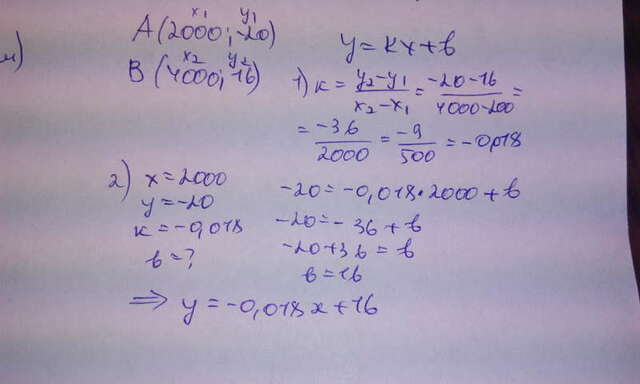 x₁ y₁
A(2000; -20)
y = kx+b
м)
x₂ y₂
B(4000; -16)
1) k = (y₂-y₁)/(x₂-x₁) = (-20-16)/(4000-200) =
= -36/2000 = -9/500 = -0,018
2) x = 2000
y = -20
k = -0,018
b = ?
-20 = -0,018·2000 + b
-20 = -36 + b
-20+36 = b
b = 16
⟹ y = -0,018x+16